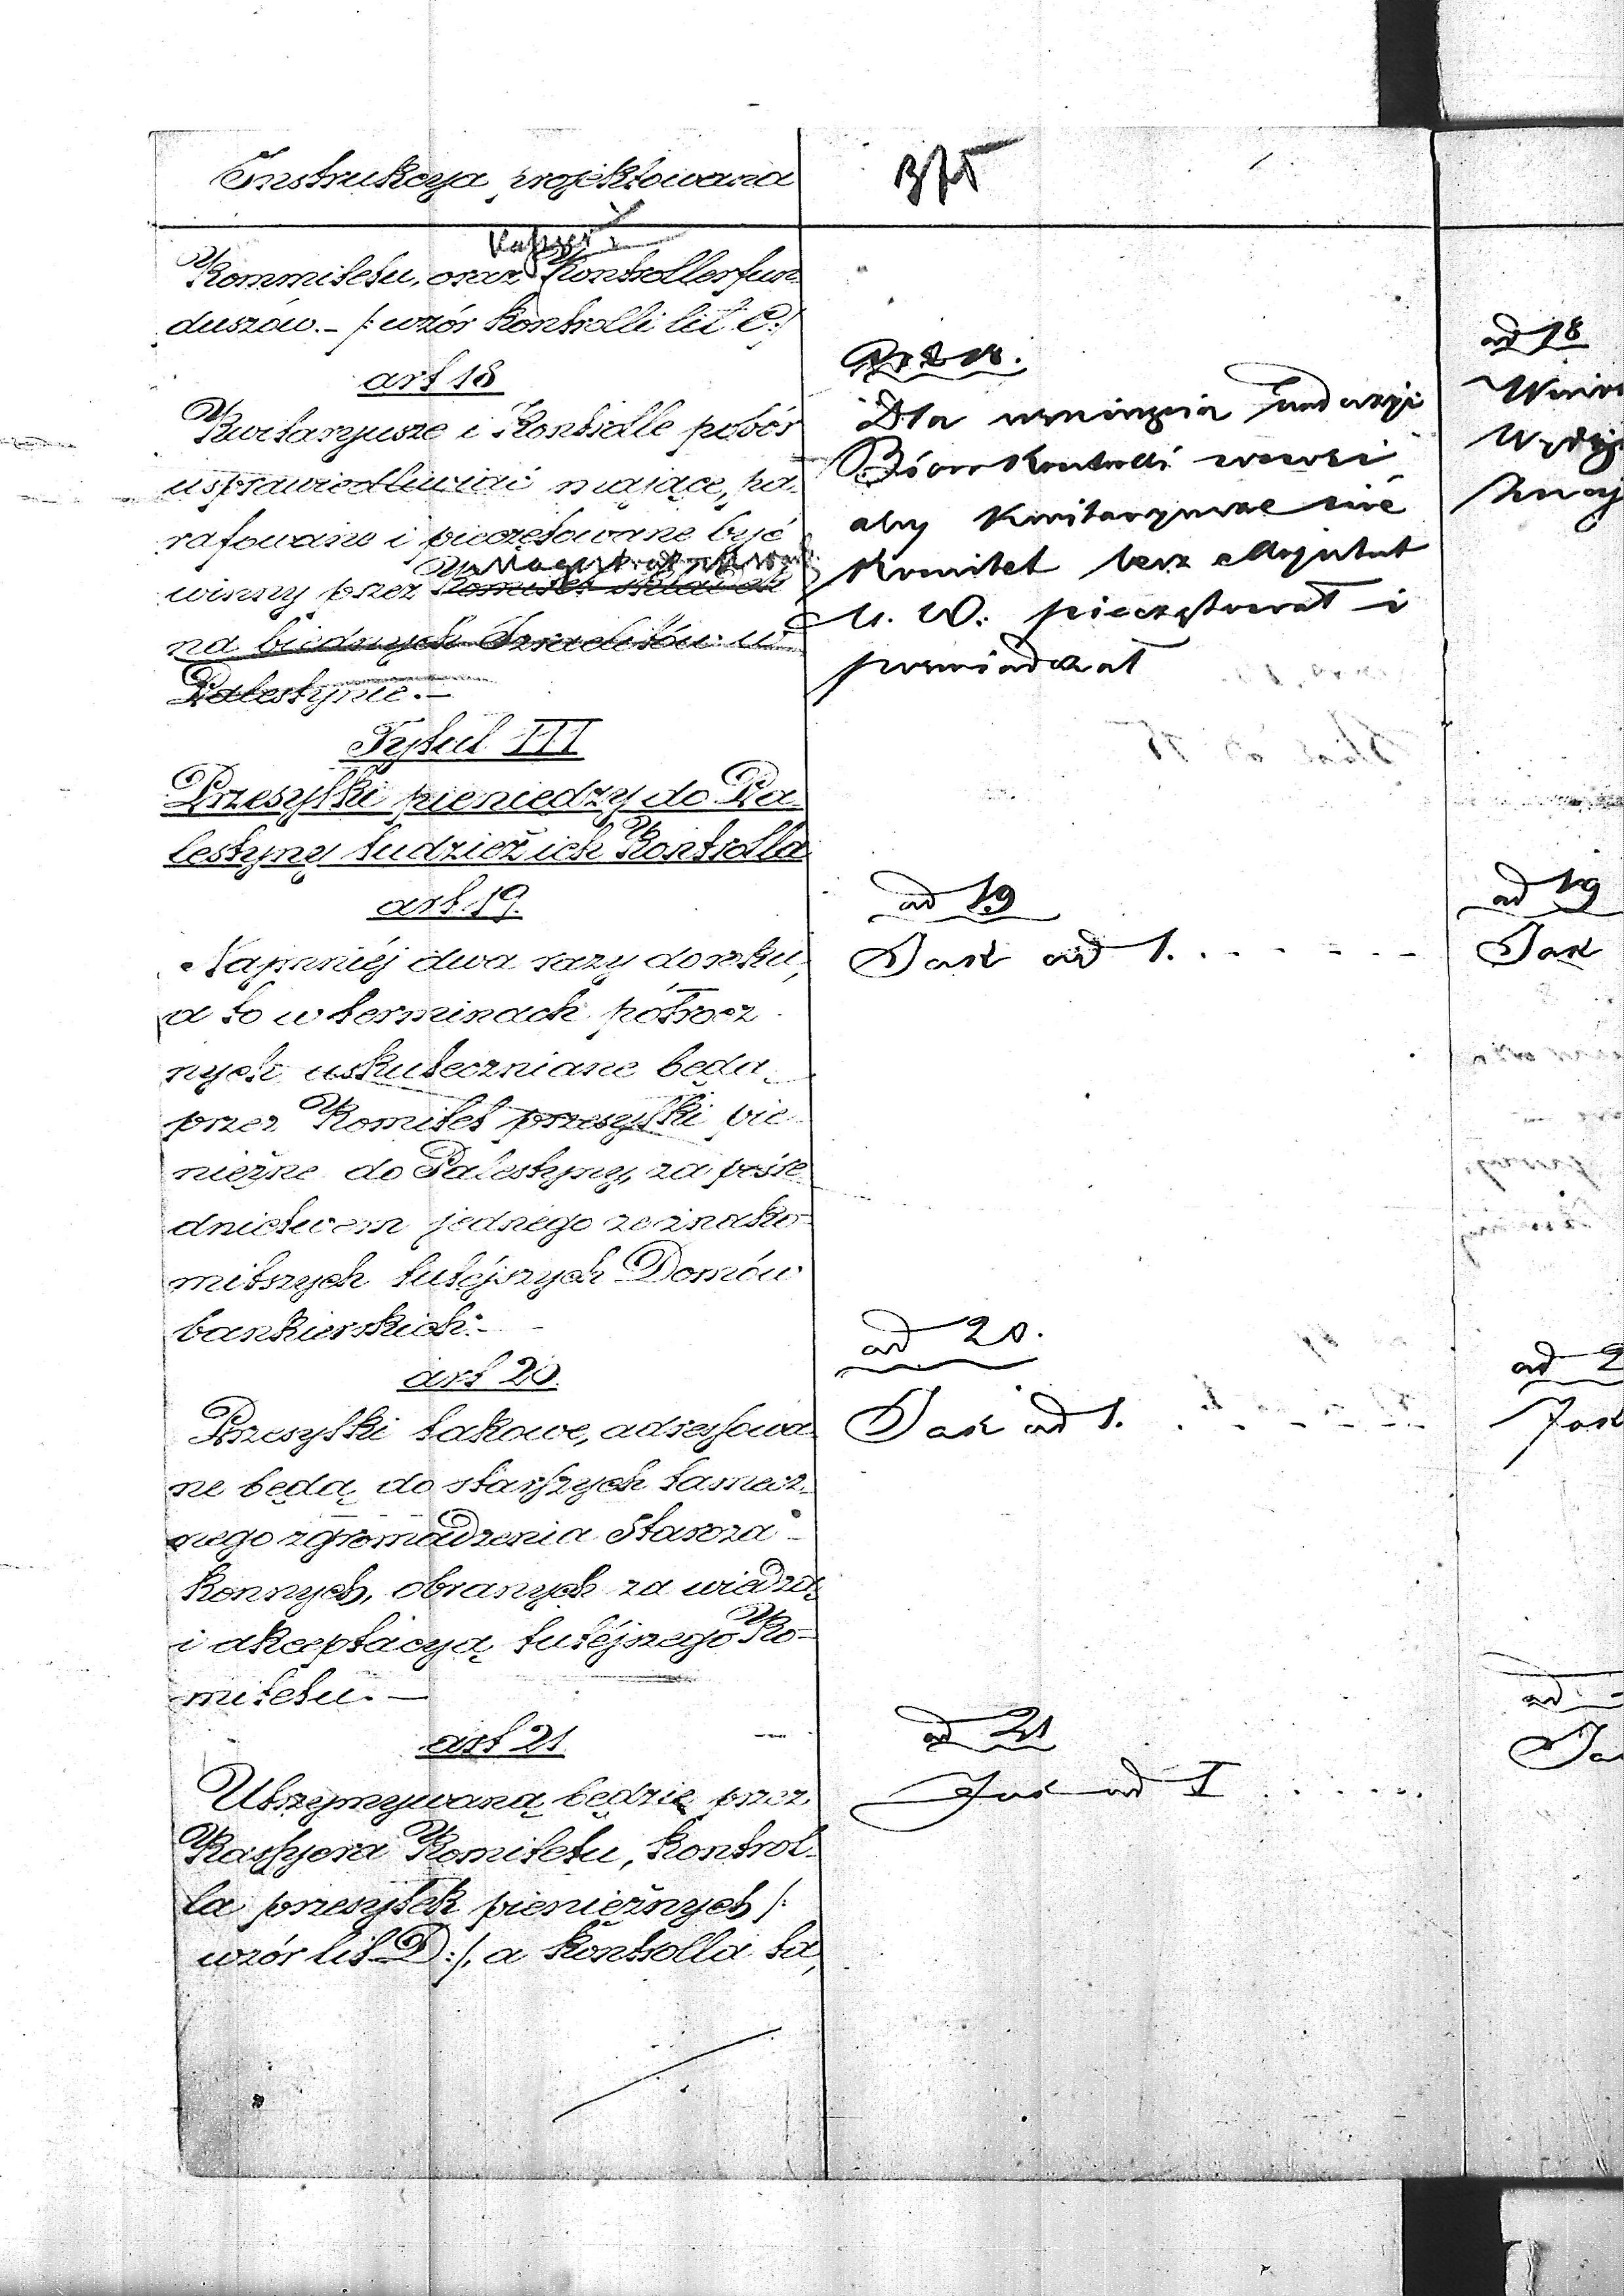 Instrukcya projektowana
Kassyer i
Kommitetu, oraz Kontroller fun
duszów. - /: wzór Kontrolli lit C:/
art 18
Kwitaryusze i Kontrolle pobór
usprawiedliwiać mające, pa
rafowane i pieczętowane być
winny przez Komitet składek
na biednych Izraelitów w
Palestynie. -
Tytuł III
Przesyłki pieniędzy do Pa
lestyny tudzież ich Kontrolla
art. 19.
Najmniéj dwa razy do roku,
a to w terminach półrocz
nych uskuteczniane będą
przez Komitet przesyłki pie
niężne do Palestyny, za pośre
dnictwem jednego ze znako
mitszych tutéjszych Domów
bankierskich. -
art 20.
Przesyłki takowe, adressowa
ne będą do starszych tamecz
nego zgromadzenia Staroza
konnych, obranych za wiedzą
i akceptacyą tutéjszego Ko=
mitetu. -
art 21
Utrzymywaną będzie przez
Kassyera Komitetu, Kontrol
la przesyłek pieniężnych /:
wzór lit D:/, a Kontrolla ta,
Dla
aby Kwitaryusze nie
Komitet lecz Magistrat
M. W. pieczętował i
poświadczał
ad 19
Jak ad 1.
ad 20.
Jak ad 1.
ad 21
Jak ad I
ad 18
ad 19
Jak
ad 2
Jak
ad